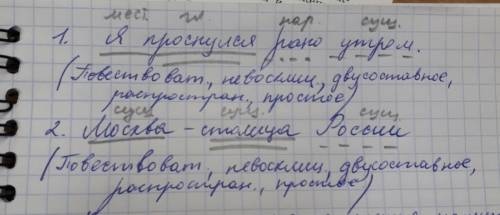 мест. гл. нар. сущ.
1. Я проснулся рано утром.
(Повествоват., невосклиц, двусоставное,
распростран., простое)
сущ сущ. сущ.
2. Москва - столица России
(Повествоват, невосклиц, двусоставное,
распростран., простое)